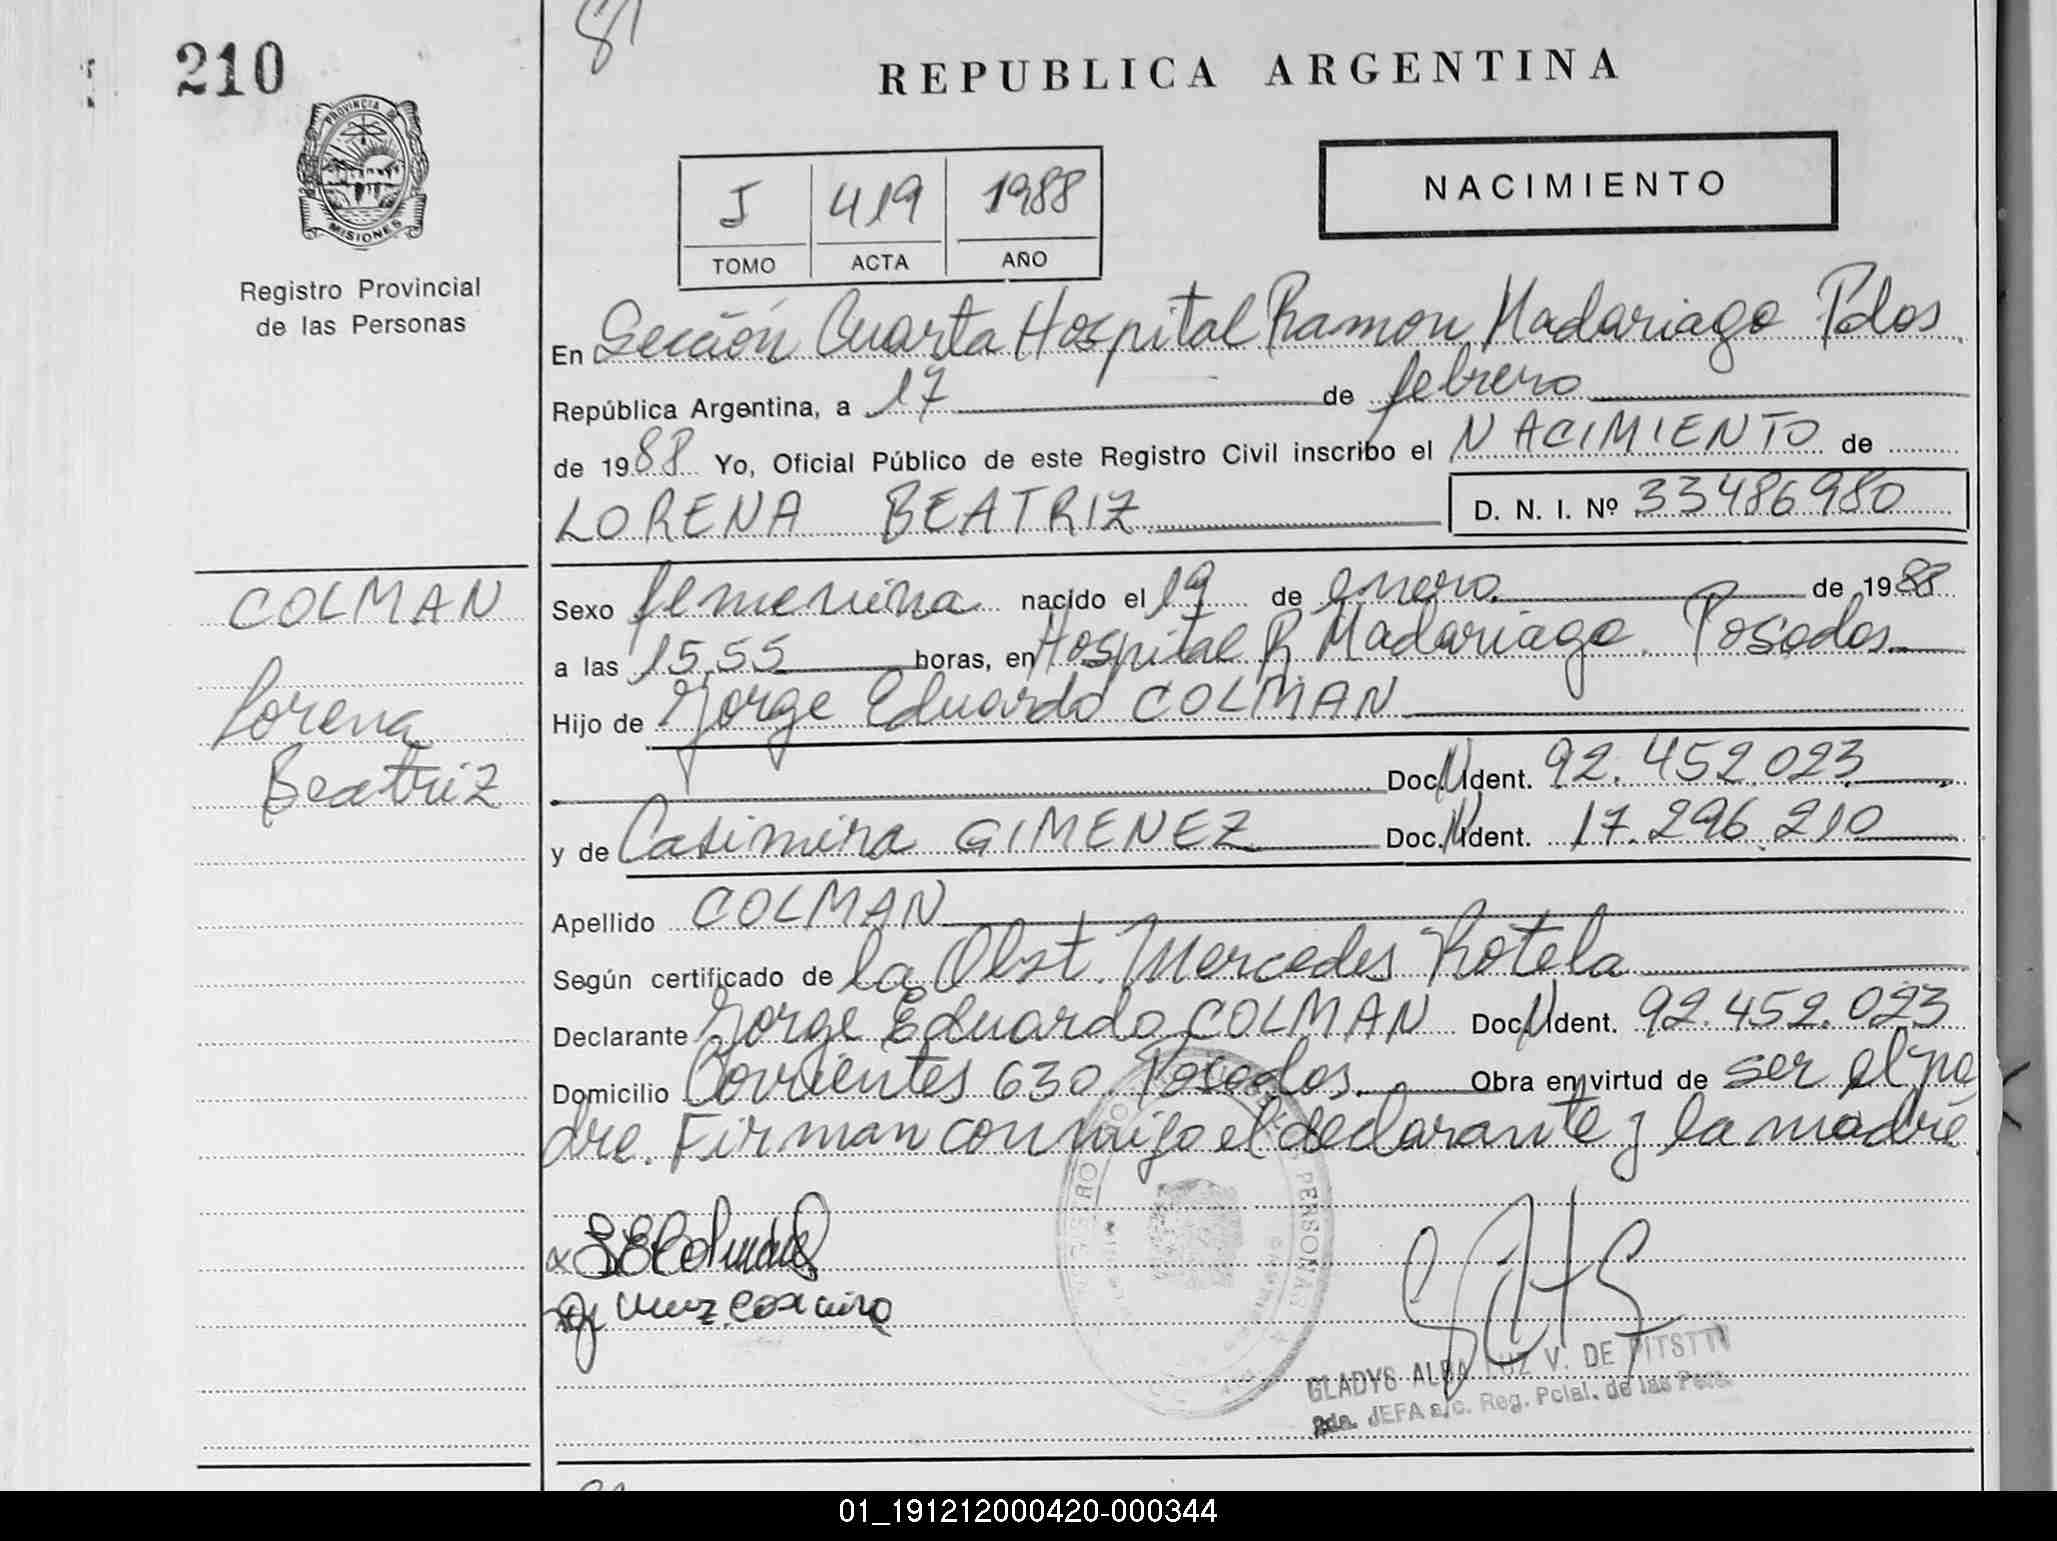 210
REPUBLICA ARGENTINA
PROVINCIA DE
MISIONES
Registro Provincial
de las Personas
J 419 1988
TOMO ACTA AÑO
NACIMIENTO
En Sección Cuarta Hospital Ramon Madariaga Pdas
República Argentina, a 17 de febrero
de 1988 Yo, Oficial Público de este Registro Civil inscribo el NACIMIENTO de
LORENA BEATRIZ D. N. I. Nº 33486980
COLMAN
Lorena
Beatriz
Sexo femenina nacido el 19 de enero de 1988
a las 15,55 horas, en Hospital R. Madariaga. Posadas
Hijo de Jorge Eduardo COLMAN
Doc. N. Ident. 92.452.023
y de Casimira GIMENEZ Doc. N. Ident. 17.296.210
Apellido COLMAN
Según certificado de la Obst. Mercedes Rotela
Declarante Jorge Eduardo COLMAN Doc. N. Ident. 92.452.023
Domicilio Corrientes 630 Posadas. Obra en virtud de ser el pa
dre. Firman conmigo el declarante y la madre
GLADYS ALBA LUZ V. DE
JEFA a/c. Reg. Pcial. de las Pers.
01_191212000420-000344